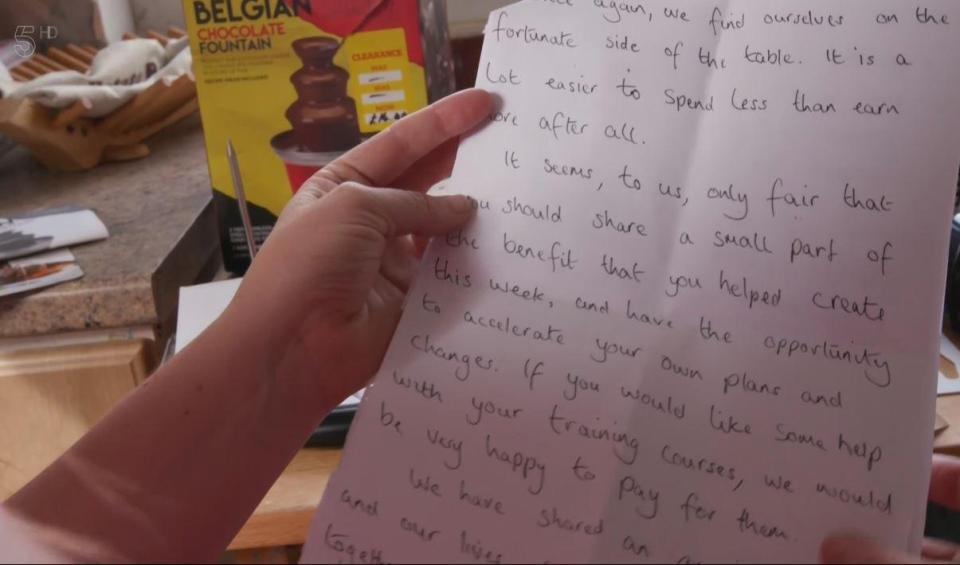 5 HD
BELGIAN
CHOCOLATE
FOUNTAIN
CLEARANCE
WAS
WAS
NOW
again, we find ourselves on the
fortunate side of the table. It is a
lot easier to spend less than earn
more after all.
It seems, to us, only fair that
you should share a small part of
the benefit that you helped create
this week, and have the opportunity
to accelerate your own plans and
changes. If you would like some help
with your training courses, we would
be very happy to pay for them.
We have shared an
and our lives